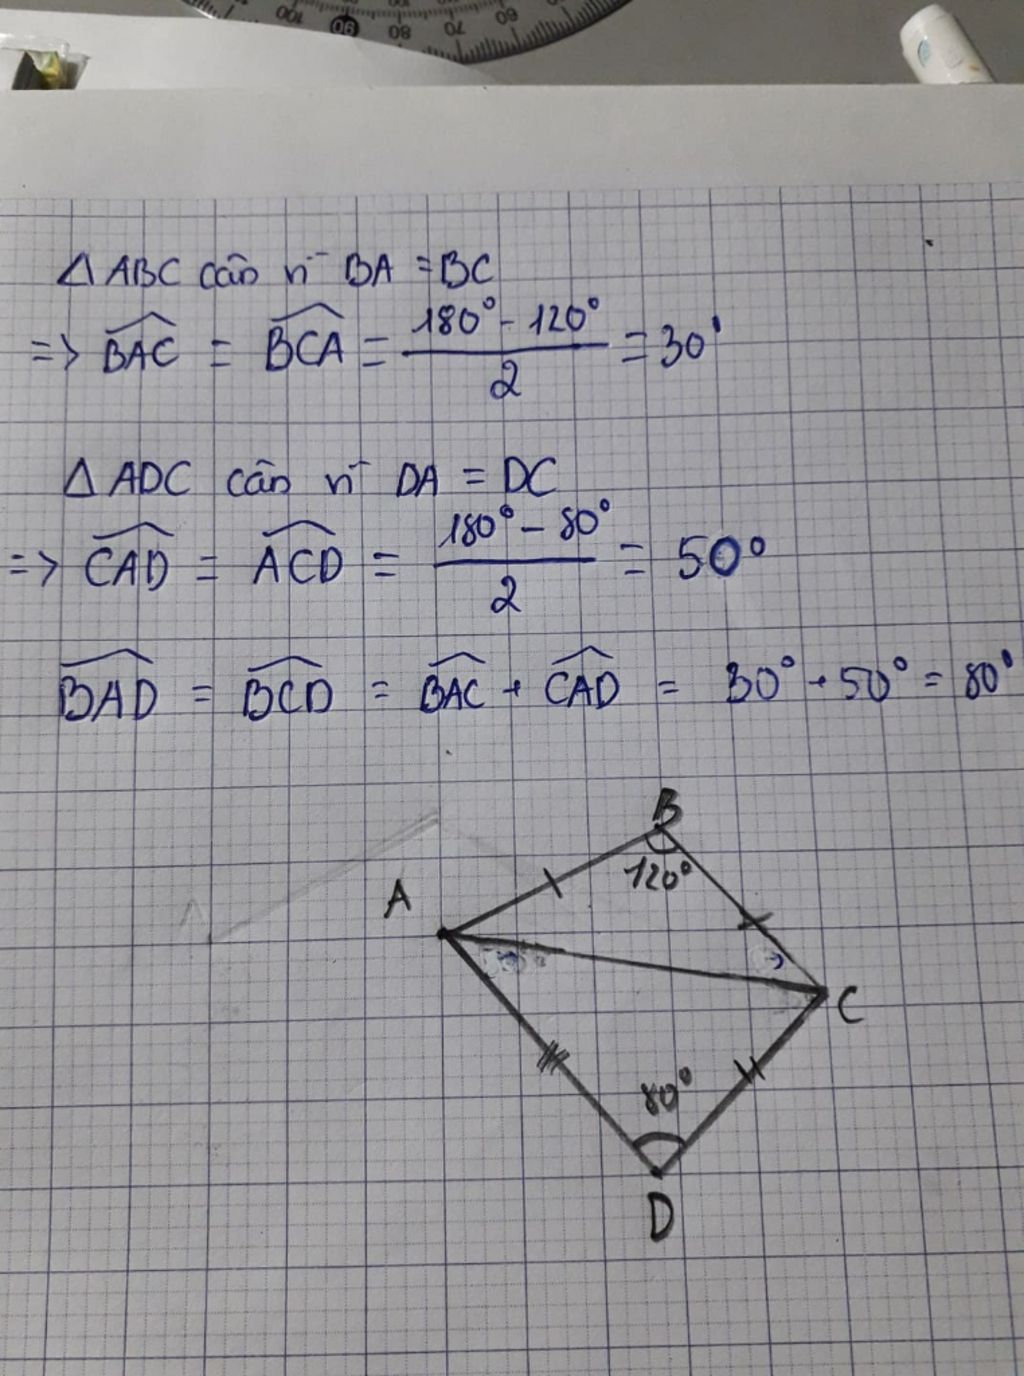 100 90 80 70 60
△ABC cân vì BA = BC
=> BAC = BCA = 180° - 120° / 2 = 30°
△ADC cân vì DA = DC
=> CAD = ACD = 180° - 80° / 2 = 50°
BAD = BCD = BAC + CAD = 30° + 50° = 80°
B
120°
A
C
80°
D